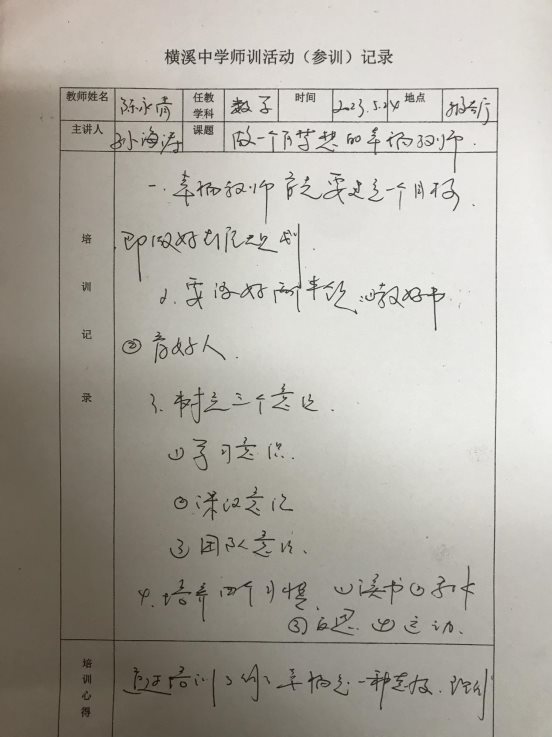 横溪中学师训活动（参训）记录
教师姓名 陈永青 任教学科 数学 时间 2023.5.24 地点 报告厅
主讲人 孙海涛 课题 做一个有梦想的幸福教师
培训记录
一、幸福教师首先要建立一个目标
即做好专业规划.
2. 要练好两本领①教好书
② 育好人.
3. 树立三个意识.
①学习意识.
②课改意识
③团队意识.
4. 培养四个习惯. ①读书②学术
③反思. ④运动.
培训心得
通过培训 幸福是一种